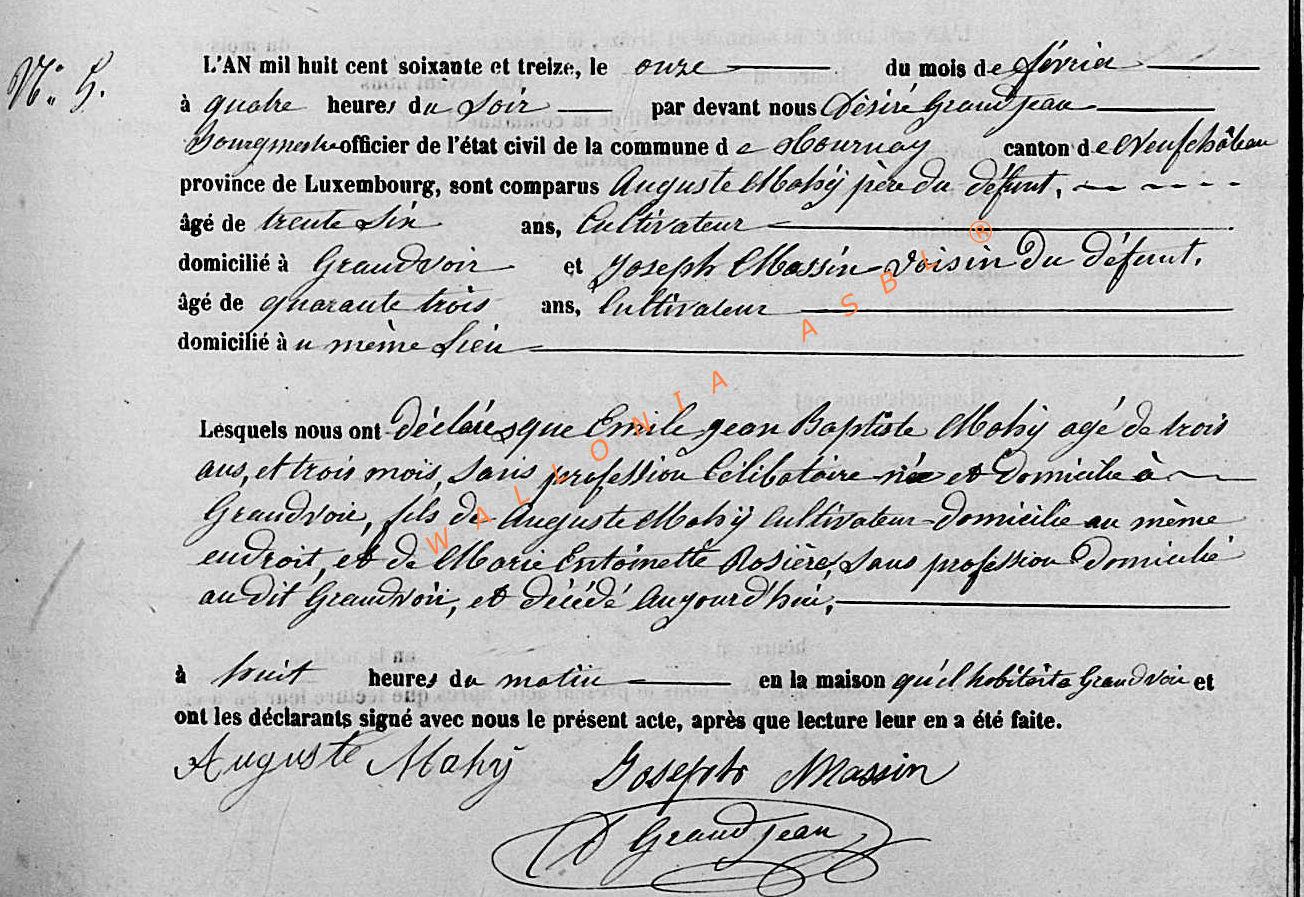 N°. 5.
L'AN mil huit cent soixante et treize, le onze du mois de février
à quatre heures du Soir par devant nous Désiré Grandjean
Bourgmestre officier de l'état civil de la commune de Tournay canton de Neufchâteau
province de Luxembourg, sont comparus Auguste Mahÿ père du défunt,
âgé de trente Six ans, Cultivateur
domicilié à Grandvoir et Joseph Massin voisin du défunt.
âgé de quarante trois ans, Cultivateur
domicilié au même Lieu
Lesquels nous ont déclarés que Emile jean Baptiste Mahÿ agé de trois
ans, et trois mois, Sans profession Célibataire né et domicilié à
Grandvoir, fils de Auguste Mahÿ Cultivateur domicilié au même
endroit, et de Marie Entoinette Rosière, Sans profession Domicilié
au dit Grandvoir, et décédé Aujourd'hui,
à huit heures du matin en la maison qu'il habitait à Grandvoir et
ont les déclarants signé avec nous le présent acte, après que lecture leur en a été faite.
Auguste Mahÿ Joseph Massin
D Grandjean
WALLONIA ASBL ®